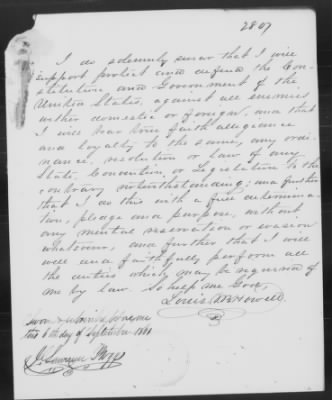 2807
I do solemnly swear that I will
support protect and defend the Con-
stitution and Government of the
United States, against all enemies
wether domestic or foreign, and that
I will bear true faith allegiance
and loyalty to the same, any ordi-
nance, resolution or law of any
State, Convention, or Legislation to the
contrary notwithstanding; and further
that I do this with a full determina-
tion, pledge and purpose, without
any mental reservation or evasion
whatsoever, and further that I will
well and faithfully perform all
the duties which may be required of
me by law. So help me God,
Louis Howell
Sworn & subscribed before me
this 6th day of September 1861
J. Lawrence